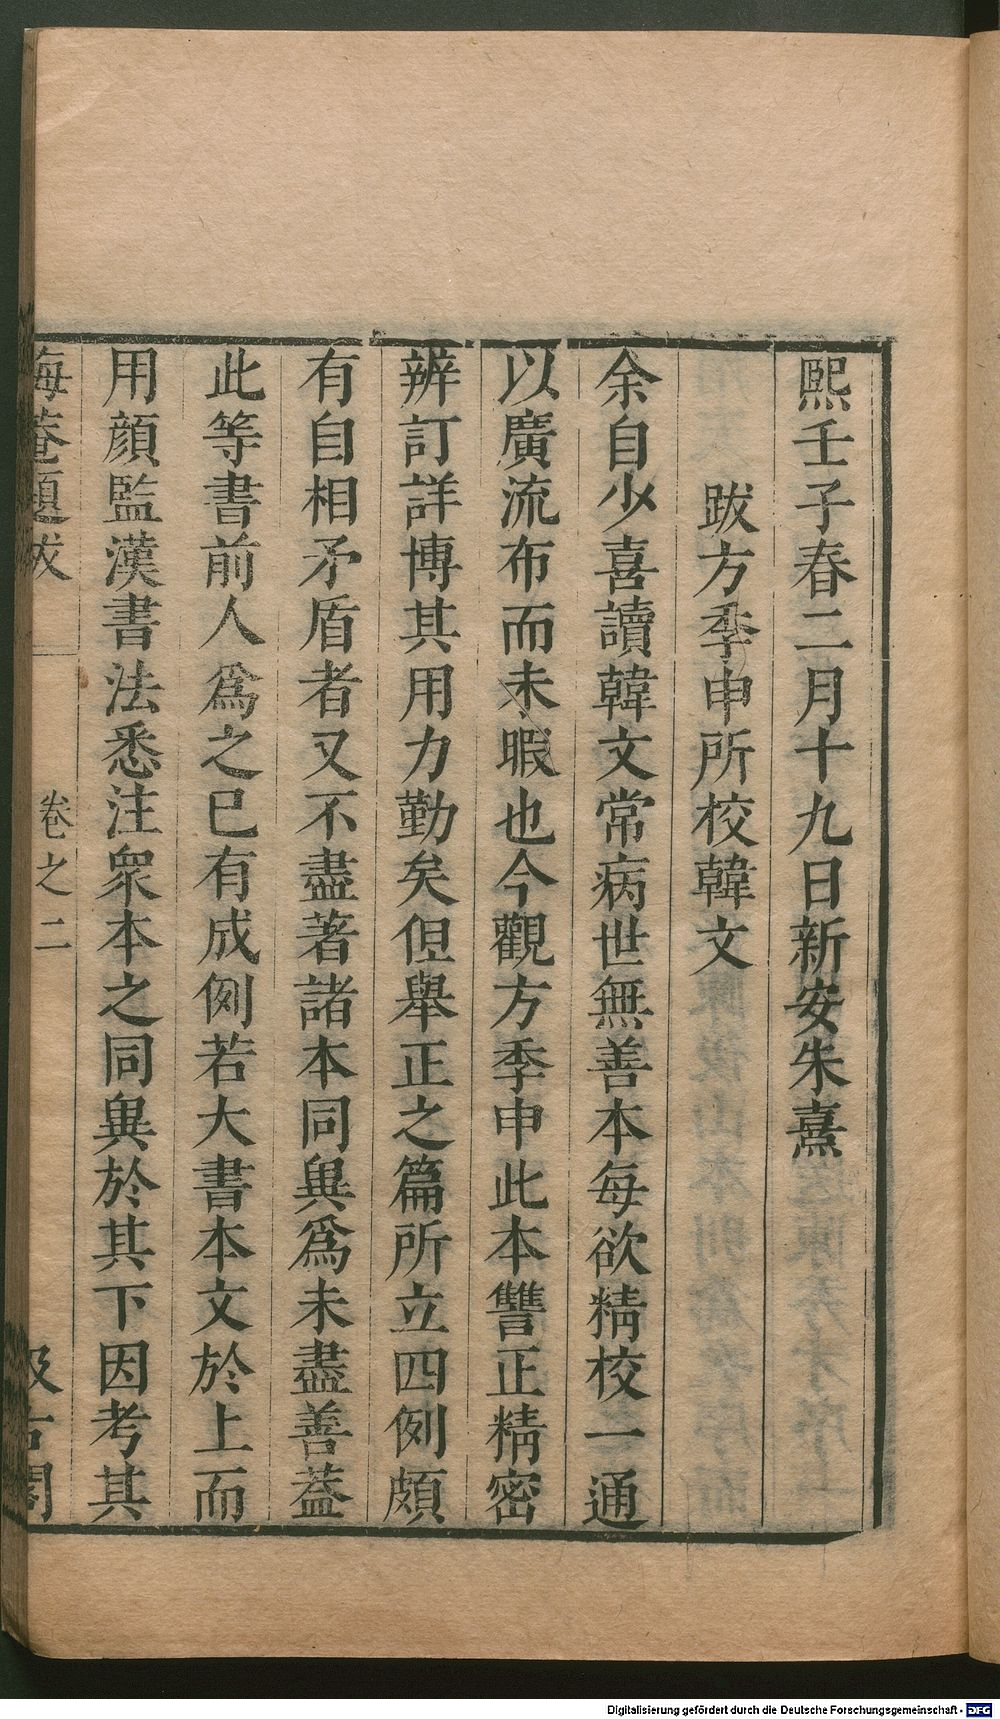 熙壬子春二月十九日新安朱熹
跋方季申所校韓文
余自少喜讀韓文常病世無善本每欲精校一通
以廣流布而未暇也今觀方季申此本讐正精密
辨訂詳博其用力勤矣但舉正之篇所立四例頗
有自相矛盾者又不盡著諸本同異爲未盡善葢
此等書前人爲之已有成例若大書本文於上而
用顔監漢書法悉注衆本之同異於其下因考其
海菴題跋 卷之二 汲古閣
Digitalisierung gefördert durch die Deutsche Forschungsgemeinschaft - DFG